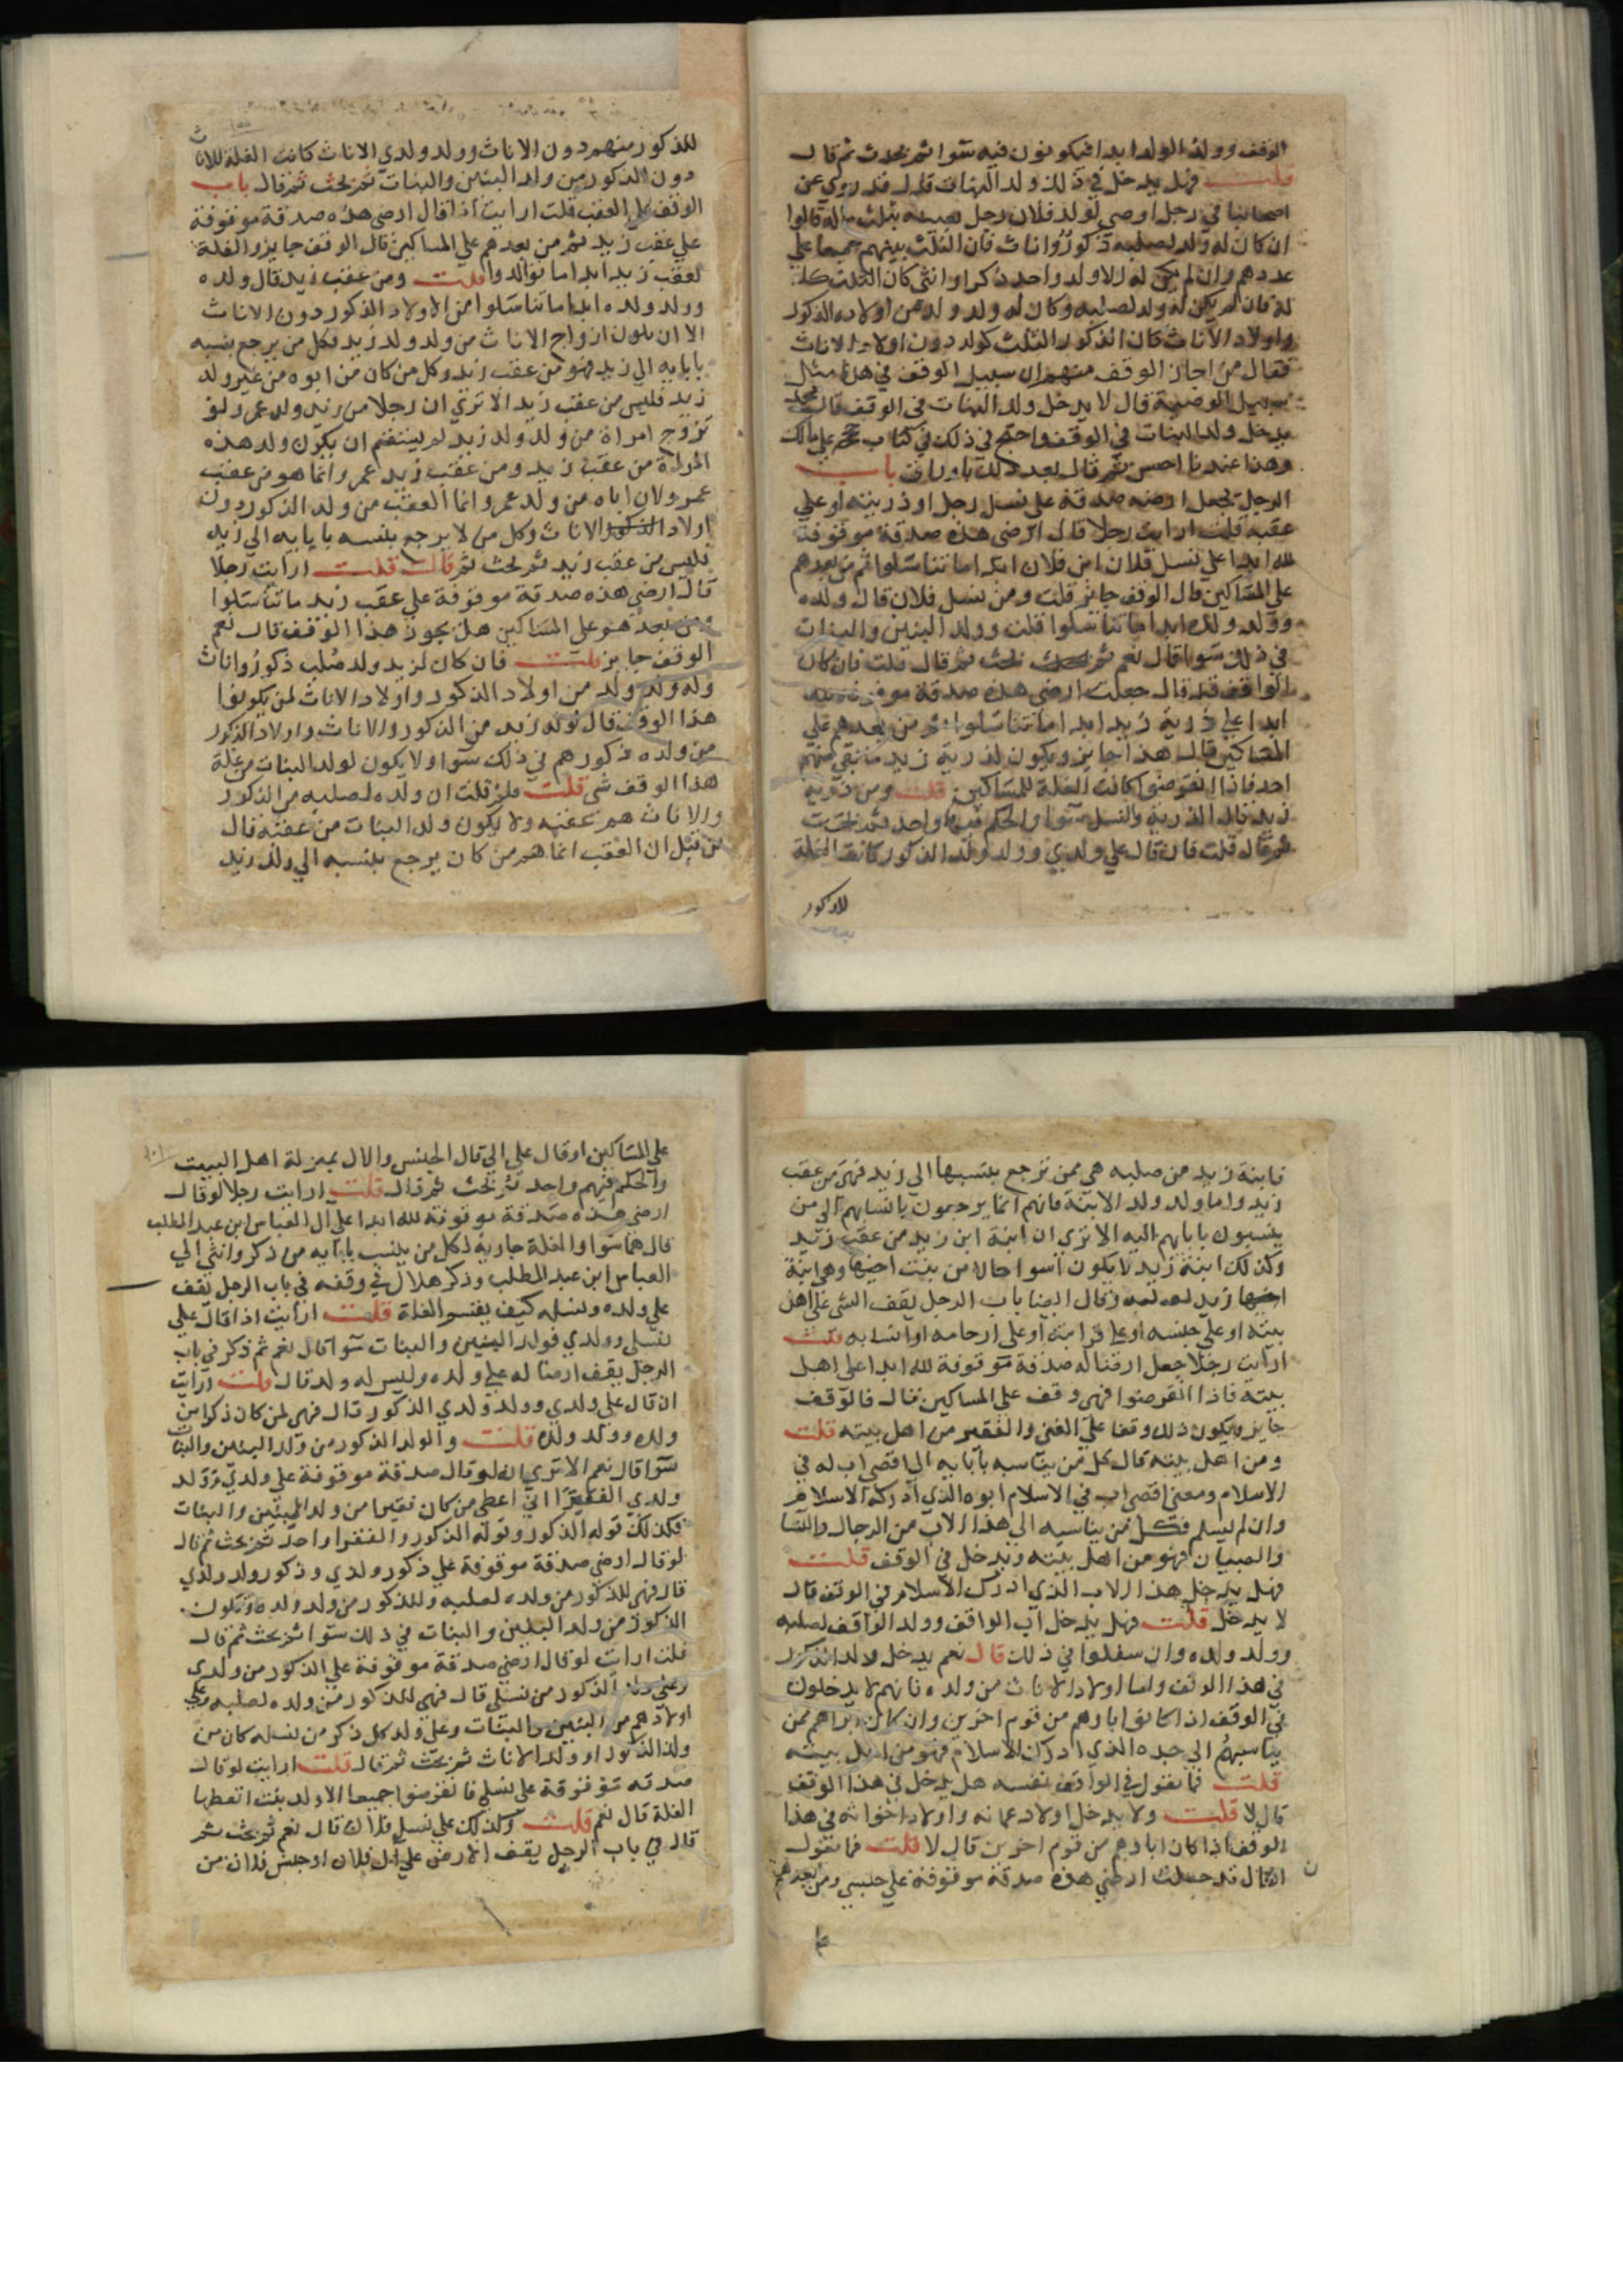 الوقف وولد الولد ابدا فيكونون فيه سوا ثم بحث ثم قال
قلت فهل يدخل في ذلك ولد البنات قال قد روي عن
اصحابنا في رجل اوصي لولد فلان رجل بثلث ماله قالوا
ان كان له ولد لصلبه ذكور واناث فان الثلث بينهم جميعا علي
عددهم وان لم يكن له الا ولد واحد ذكرا او انثي كان الثلث كله
له فان لم يكن له ولد لصلبه وكان له ولد ولد من اولاده الذكور
واولاد الاناث كان الذكور الثلث كولد دون اولاد الاناث
فقال من اجاز الوقف منهم ان سبيل الوقف في هذا مثل
سبيل الوصية قال لا يدخل ولد البنات في الوقف قال محمد
يدخل ولد البنات في الوقف واحتج في ذلك في كتاب علي مالك
وهذا عندنا احسن ثم قال بعد ذلك باوراق باب
الرجل يجعل ارضه صدقة علي نسل رجل او ذريته او علي
عقبه قلت ارايت رجلا قال ارضي هذه صدقة موقوفة
لله ابدا علي نسل فلان ابن فلان ابدا ما تناسلوا ثم من بعدهم
علي المساكين قال الوقف جائز قلت ومن نسل فلان قال ولده
وولد ولده ابدا ما تناسلوا قلت وولد البنين والبنات
في ذلك سوا قال نعم ثم بحث ثم قال قلت فان كان
الواقف قد قال جعلت ارضي هذه صدقة موقوفة لله
ابدا علي ذرية زيد ابدا ما تناسلوا ثم من بعدهم علي
المساكين قال هذا جايز ويكون لذرية زيد ما بقي منهم
احد فاذا انقرضوا كانت الغلة للمساكين قلت ومن ذرية
زيد قال الذرية والنسل سوا والحكم فيها واحد ثم بحث
ثم قال قلت فان قال علي ولدي وولد ولد الذكور كانت الغلة
للذكور
للذكور منهم دون الاناث وولد ولدي الاناث كانت الغلة للاناث
دون الذكور من ولد البنين والبنات ثم بحث ثم قال باب
الوقف علي العقب قلت ارايت اذا قال ارضي هذه صدقة موقوفة
علي عقب زيد ثم من بعدهم علي المساكين قال الوقف جايز والغلة
لعقب زيد ابدا ما توالدوا قلت ومن عقب زيد قال ولده
وولد ولده ابدا ما تناسلوا من الاولاد الذكور دون الاناث
الا ان يكون ازواج الاناث من ولد ولد زيد فكل من يرجع بنسبه
بابايه الي زيد فهو من عقب زيد وكل من كان من ابوه من غير ولد
زيد فليس من عقب زيد الا تري ان رجلا من ولد عمر ولو
تزوج امراة من ولد ولد زيد لم يستقم ان يكون ولد هذه
المراة من عقب زيد ومن عقب عمر وانما هو من عقب
عمر ولان اباه من ولد عمر وانما العقب من ولد الذكور دون
اولاد الاناث وكل من لا يرجع بنسبه بابايه الي زيد
فليس من عقب زيد ثم بحث ثم قال قلت ارايت رجلا
قال ارضي هذه صدقة موقوفة علي عقب زيد ما تناسلوا
ومن بعدهم علي المساكين هل يجوز هذا الوقف قال نعم
الوقف جايز قلت فان كان لزيد ولد صلب ذكور واناث
وله ولد ولد من اولاد الذكور واولاد الاناث لمن يكون
هذا الوقف قال لولد زيد من الذكور والاناث واولاد الذكور
من ولده ذكورهم في ذلك سوا ولا يكون لولد البنات من غلة
هذا الوقف شي قلت فلم قلت ان ولده لصلبه من الذكور
والاناث هم عقبه ولا يكون ولد البنات من عقبه قال
من قبل ان العقب انما هو من كان يرجع بنسبه الي ولد زيد
فابنة زيد من صلبه هي ممن ترجع بنسبها الي زيد فهي من عقب
زيد واما ولد ولد الابنة فانهم انما يرجعون بانسابهم الي من
ينسبون بابايهم اليه الا تري ان ابنة ابن زيد من عقب زيد
وكذلك ابنة زيد لا يكون اسوا حالا من بنت اخيها وهي ابنة
زيد لصلبه وقال ايضا باب الرجل يقف الشي علي اهل
بيته او علي جنسه او علي قرابته او علي ارحامه او انسابه قلت
ارايت رجلا جعل ارضا له صدقة موقوفة لله ابدا علي اهل
بيته فاذا انقرضوا فهي وقف علي المساكين قال فالوقف
جايز ويكون ذلك وقفا علي الغني والفقير من اهل بيته قلت
ومن اهل بيته قال كل من يناسبه بابايه الي اقصي اب له في
الاسلام ومعني اقصي اب في الاسلام ابوه الذي ادرك الاسلام
وان لم يسلم فكل من يناسبه الي هذا الاب من الرجال والنسا
والصبيان فهو من اهل بيته ويدخل في الوقف قلت
فهل يدخل هذا الاب الذي ادرك الاسلام في الوقف قال
لا يدخل قلت فهل يدخل اب الواقف وولد الواقف لصلبه
وولد ولده وان سفلوا في ذلك قال نعم يدخل ولد الذكور
في هذا الوقف واما اولاد الاناث من ولده فانهم لا يدخلون
في الوقف اذا كانوا اباوهم من قوم اخرين وان كان اباوهم ممن
يناسبهم الي جده الذي ادرك الاسلام فهو من اهل بيته
قلت فما تقول في الواقف نفسه هل يدخل في هذا الوقف
قال لا قلت ولا يدخل اولاد عماته واولاد اخواته في هذا
الوقف اذا كان اباوهم من قوم اخرين قال لا قلت فما تقول
ان قال قد جعلت ارضي هذه صدقة موقوفة علي جنسي ومن بعدهم
علي
علي المساكين او قال علي الي قال الجنس والال بمنزلة اهل البيت
والحكم فيهم واحد ثم بحث ثم قال قلت ارايت رجلا لو قال
ارضي هذه صدقة موقوفة لله ابدا علي ال العباس ابن عبد المطلب
قال هما سوا والغلة جارية لكل من ينسب بابايه من ذكر وانثي الي
العباس ابن عبد المطلب وذكر هلال في وقفه في باب الرجل يقف
علي ولده ونسله كيف يقسم الغلة قلت ارايت اذا قال علي
نسلي وولدي فولد البنين والبنات سوا قال نعم ثم ذكر في باب
الرجل يقف ارضا له علي ولده وليس له ولد قال قلت ارايت
ان قال علي ولدي وولد ولدي الذكور قال فهي لمن كان ذكرا من
ولده وولد ولده قلت والولد الذكور من ولد البنين والبنات
سوا قال نعم الا تري انه لو قال صدقة موقوفة علي ولدي وولد
ولدي الفقرا اني اعطي من كان فقيرا من ولد البنين والبنات
فكذلك قوله الذكور وقوله الذكور والفقرا واحد ثم بحث ثم قال
لو قال ارضي صدقة موقوفة علي ذكور ولدي وذكور ولد ولدي
قال فهي للذكور من ولده لصلبه وللذكور من ولد ولده ويكون
الذكور من ولد البنين والبنات في ذلك سوا ثم بحث ثم قال
قلت ارايت لو قال ارضي صدقة موقوفة علي الذكور من ولدي
وعلي ولد الذكور من نسلي قال فهي للذكور من ولده لصلبه وعلي
اولادهم من البنين والبنات وعلي ولد كل ذكر من نسله كان من
ولد الذكور او ولد الاناث ثم بحث ثم قال قلت ارايت لو قال
صدقة موقوفة علي نسلي فانقرضوا جميعا الا ولد بنت اتعطيها
الغلة قال نعم قلت وكذلك علي نسل فلان قال نعم ثم بحث ثم
قال في باب الرجل يقف الارض علي ال فلان او جنس فلان من